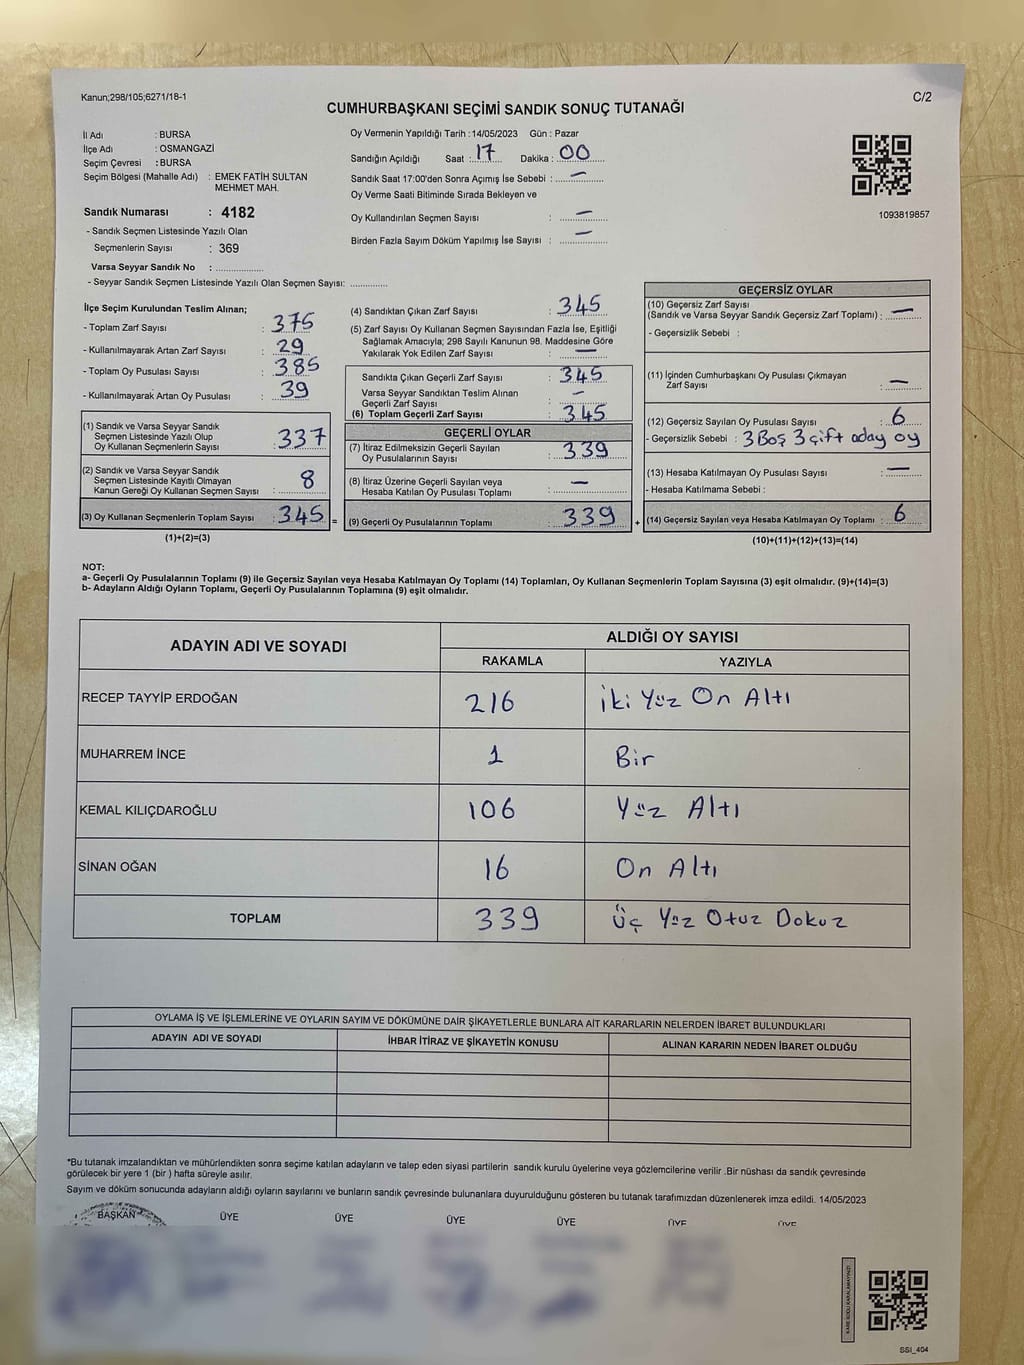 Kanun;298/105;6271/18-1
C/2
CUMHURBAŞKANI SEÇİMİ SANDIK SONUÇ TUTANAĞI
İl Adı : BURSA
İlçe Adı : OSMANGAZİ
Seçim Çevresi : BURSA
Seçim Bölgesi (Mahalle Adı) : EMEK FATİH SULTAN
MEHMET MAH.
Sandık Numarası : 4182
- Sandık Seçmen Listesinde Yazılı Olan
Seçmenlerin Sayısı : 369
Varsa Seyyar Sandık No : ..................
- Seyyar Sandık Seçmen Listesinde Yazılı Olan Seçmen Sayısı: .............
Oy Vermenin Yapıldığı Tarih :14/05/2023 Gün : Pazar
Sandığın Açıldığı Saat : 17 Dakika : 00
Sandık Saat 17:00'den Sonra Açımış İse Sebebi : —
Oy Verme Saati Bitiminde Sırada Bekleyen ve
Oy Kullandırılan Seçmen Sayısı : —
Birden Fazla Sayım Döküm Yapılmış İse Sayısı : —
1093819857
İlçe Seçim Kurulundan Teslim Alınan;
- Toplam Zarf Sayısı : 375
- Kullanılmayarak Artan Zarf Sayısı : 29
- Toplam Oy Pusulası Sayısı : 385
- Kullanılmayarak Artan Oy Pusulası : 39
(1) Sandık ve Varsa Seyyar Sandık
Seçmen Listesinde Yazılı Olup
Oy Kullanan Seçmenlerin Sayısı : 337
(2) Sandık ve Varsa Seyyar Sandık
Seçmen Listesinde Kayıtlı Olmayan
Kanun Gereği Oy Kullanan Seçmen Sayısı : 8
(3) Oy Kullanan Seçmenlerin Toplam Sayısı : 345
(1)+(2)=(3)
=
(4) Sandıktan Çıkan Zarf Sayısı : 345
(5) Zarf Sayısı Oy Kullanan Seçmen Sayısından Fazla İse, Eşitliği
Sağlamak Amacıyla; 298 Sayılı Kanunun 98. Maddesine Göre
Yakılarak Yok Edilen Zarf Sayısı : —
Sandıkta Çıkan Geçerli Zarf Sayısı : 345
Varsa Seyyar Sandıktan Teslim Alınan
Geçerli Zarf Sayısı : —
(6) Toplam Geçerli Zarf Sayısı : 345
GEÇERLİ OYLAR
(7) İtiraz Edilmeksizin Geçerli Sayılan
Oy Pusulalarının Sayısı : 339
(8) İtiraz Üzerine Geçerli Sayılan veya
Hesaba Katılan Oy Pusulası Toplamı : —
(9) Geçerli Oy Pusulalarının Toplamı : 339
+
GEÇERSİZ OYLAR
(10) Geçersiz Zarf Sayısı
(Sandık ve Varsa Seyyar Sandık Geçersiz Zarf Toplamı) : —
- Geçersizlik Sebebi :
(11) İçinden Cumhurbaşkanı Oy Pusulası Çıkmayan
Zarf Sayısı : —
(12) Geçersiz Sayılan Oy Pusulası Sayısı : 6
- Geçersizlik Sebebi : 3 Boş 3 çift aday oy
(13) Hesaba Katılmayan Oy Pusulası Sayısı : —
- Hesaba Katılmama Sebebi :
(14) Geçersiz Sayılan veya Hesaba Katılmayan Oy Toplamı : 6
(10)+(11)+(12)+(13)=(14)
NOT:
a- Geçerli Oy Pusulalarının Toplamı (9) ile Geçersiz Sayılan veya Hesaba Katılmayan Oy Toplamı (14) Toplamları, Oy Kullanan Seçmenlerin Toplam Sayısına (3) eşit olmalıdır. (9)+(14)=(3)
b- Adayların Aldığı Oyların Toplamı, Geçerli Oy Pusulalarının Toplamına (9) eşit olmalıdır.
ADAYIN ADI VE SOYADI
ALDIĞI OY SAYISI
RAKAMLA YAZIYLA
RECEP TAYYİP ERDOĞAN 216 İki Yüz On Altı
MUHARREM İNCE 1 Bir
KEMAL KILIÇDAROĞLU 106 Yüz Altı
SİNAN OĞAN 16 On Altı
TOPLAM 339 Üç Yüz Otuz Dokuz
OYLAMA İŞ VE İŞLEMLERİNE VE OYLARIN SAYIM VE DÖKÜMÜNE DAİR ŞİKAYETLERLE BUNLARA AİT KARARLARIN NELERDEN İBARET BULUNDUKLARI
ADAYIN ADI VE SOYADI İHBAR İTİRAZ VE ŞİKAYETİN KONUSU ALINAN KARARIN NEDEN İBARET OLDUĞU
*Bu tutanak imzalandıktan ve mühürlendikten sonra seçime katılan adayların ve talep eden siyasi partilerin sandık kurulu üyelerine veya gözlemcilerine verilir .Bir nüshası da sandık çevresinde
görülecek bir yere 1 (bir ) hafta süreyle asılır.
Sayım ve döküm sonucunda adayların aldığı oyların sayılarını ve bunların sandık çevresinde bulunanlara duyurulduğunu gösteren bu tutanak tarafımızdan düzenlenerek imza edildi. 14/05/2023
BAŞKAN ÜYE ÜYE ÜYE ÜYE ÜYE ÜYE
KARE KODU KARALAMAYINIZ!
SSI_404